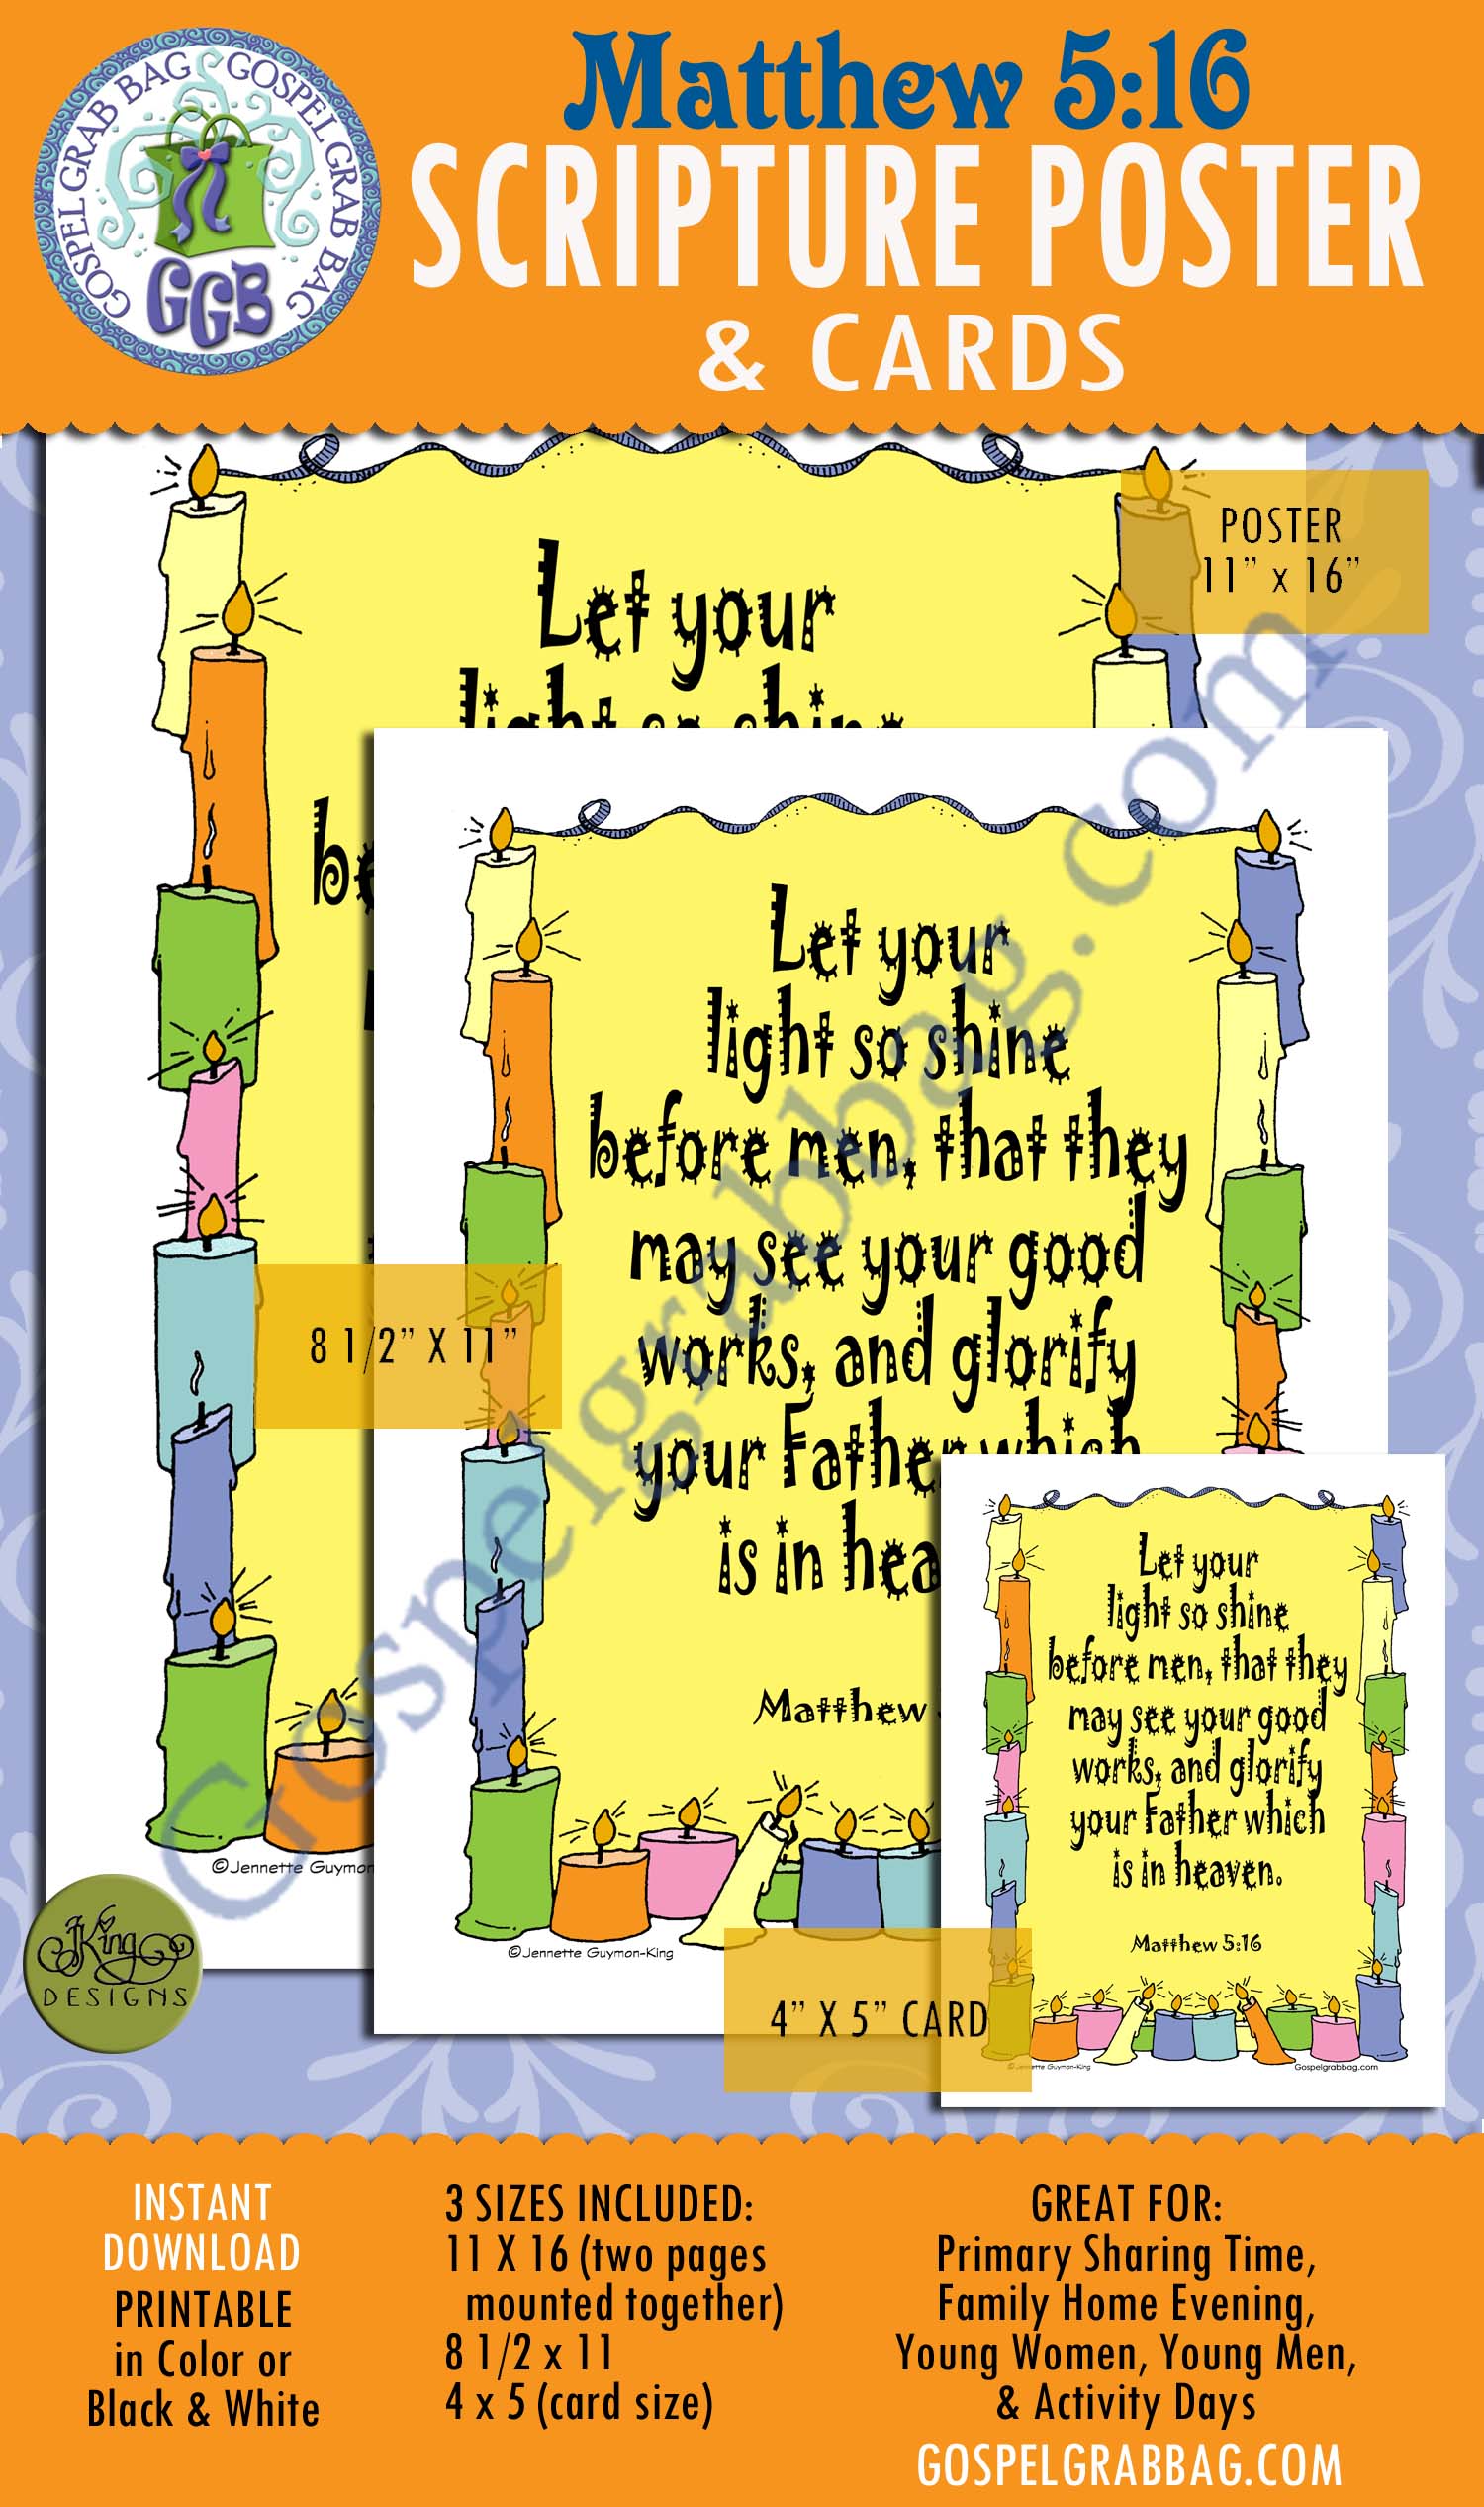 GOSPEL GRAB BAG GOSPEL GRAB BAG
GGB
Matthew 5:16
SCRIPTURE POSTER
& CARDS
POSTER
11” x 16”
Let your
light so shine
be
©Jennette Guymon
8 1/2” X 11”
Let your
light so shine
before men, that they
may see your good
works, and glorify
your Father which
is in hea
Matthew
©Jennette Guymon-King
4” X 5” CARD
Let your
light so shine
before men, that they
may see your good
works, and glorify
your Father which
is in heaven.
Matthew 5:16
©Jennette Guymon-King
Gospelgrabbag.com
Gospelgrabbag.com
JKing
DESIGNS
INSTANT
DOWNLOAD
PRINTABLE
in Color or
Black & White
3 SIZES INCLUDED:
11 X 16 (two pages
mounted together)
8 1/2 x 11
4 x 5 (card size)
GREAT FOR:
Primary Sharing Time,
Family Home Evening,
Young Women, Young Men,
& Activity Days
GOSPELGRABBAG.COM